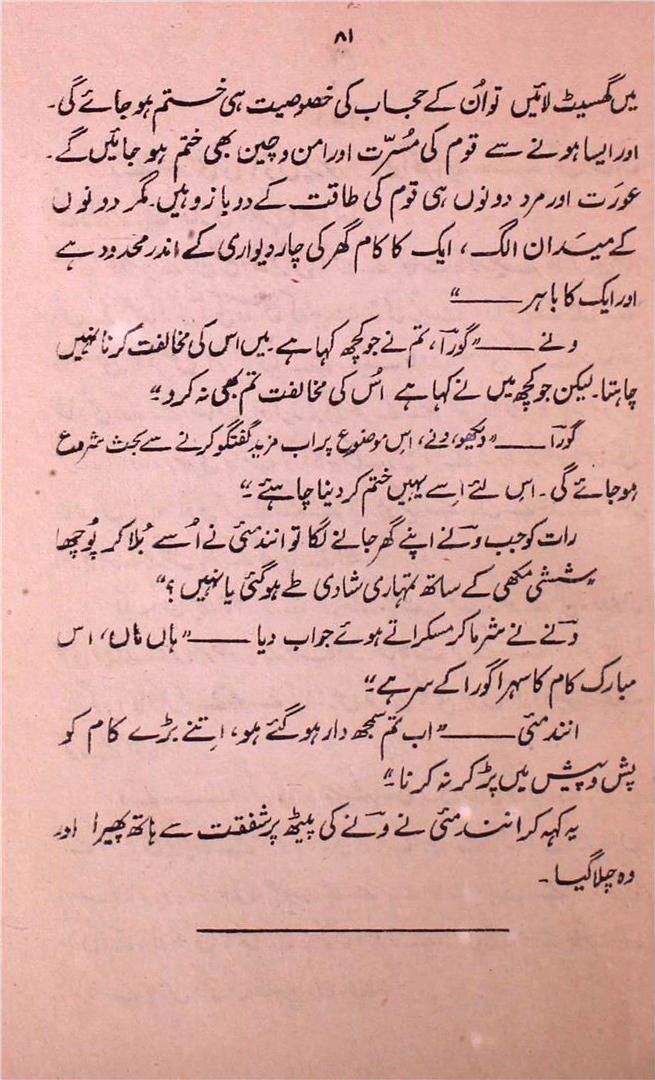 ۸۱
میں گھسیٹ لائیں تو اُن کے حجاب کی خصوصیت ہی ختم ہو جائے گی۔
اور ایسا ہونے سے قوم کی مُسرّت اور امن و چین بھی ختم ہو جائیں گے۔
عورَت اور مرد دونوں ہی قوم کی طاقت کے دو بازو ہیں۔ مگر دونوں
کے میَدان الگ، ایک کا کام گھر کی چار دیواری کے اندر محدود ہے
اور ایک کا باہر ——“
ونے —— ”گورآ، تم نے جو کچھ کہا ہے۔ میں اس کی مخالفت کرنا نہیں
چاہتا۔ لیکن جو کچھ میں نے کہا ہے اُس کی مخالفت تم بھی نہ کرو“
گورآ —— ”دیکھو، ونے، اِس موضوع پر اب مزید گفتگو کرنے سے بحث شروع
ہو جائے گی۔ اس لئے اِسے یہیں ختم کر دینا چاہئے“
رات کو جب ونے اپنے گھر جانے لگا تو انند مئی نے اُسے بُلا کر پُوچھا
”ششی مکھی کے ساتھ تمہاری شادی طے ہو گئی یا نہیں؟“
ونے نے شرما کر مسکراتے ہوئے جواب دیا —— ”ہاں ماں، اس
مبارک کام کا سہرا گورا کے سر ہے“
انند مئی —— ”اب تم سمجھ دار ہو گئے ہو، اِتنے بڑے کام کو
پش و پیش میں پڑ کر نہ کرنا“
یہ کہہ کر انند مئی نے ونے کی پیٹھ پر شفقت سے ہاتھ پھیرا اور
وہ چلا گیا۔